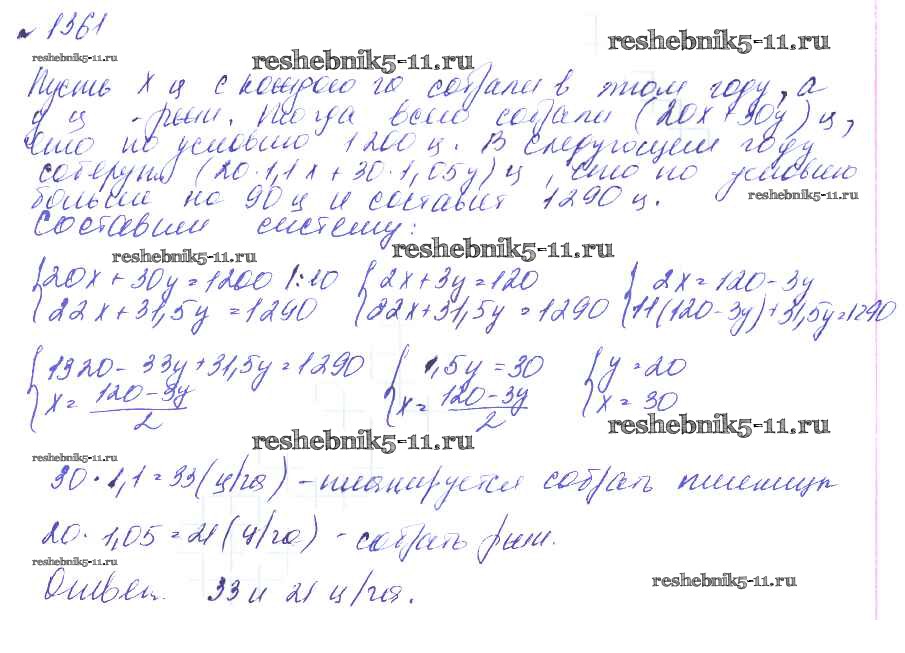 № 1361
reshebnik5-11.ru
reshebnik5-11.ru
reshebnik5-11.ru
Пусть x ц с каждого га собрали в этом году, а
y ц - ржи. Тогда всего собрали (20x + 30y) ц,
что по условию 1200 ц. В следующем году
соберут (20·1,1x + 30·1,05y) ц, что по условию
больше на 90 ц и составит 1290 ц.
reshebnik5-11.ru
Составим систему:
reshebnik5-11.ru
reshebnik5-11.ru
{20x + 30y = 1200 |:10 {2x + 3y = 120 {2x = 120 - 3y
{22x + 31,5y = 1290 {22x + 31,5y = 1290 {11(120 - 3y) + 31,5y = 1290
{1320 - 33y + 31,5y = 1290 {1,5y = 30 {y = 20
{x = (120 - 3y)/2 {x = (120 - 3y)/2 {x = 30
reshebnik5-11.ru
reshebnik5-11.ru
reshebnik5-11.ru
30 · 1,1 = 33 (ц/га) - планируется собрать пшеницы
20 · 1,05 = 21 (ц/га) - собрать ржи.
reshebnik5-11.ru
reshebnik5-11.ru
Ответ. 33 и 21 ц/га.